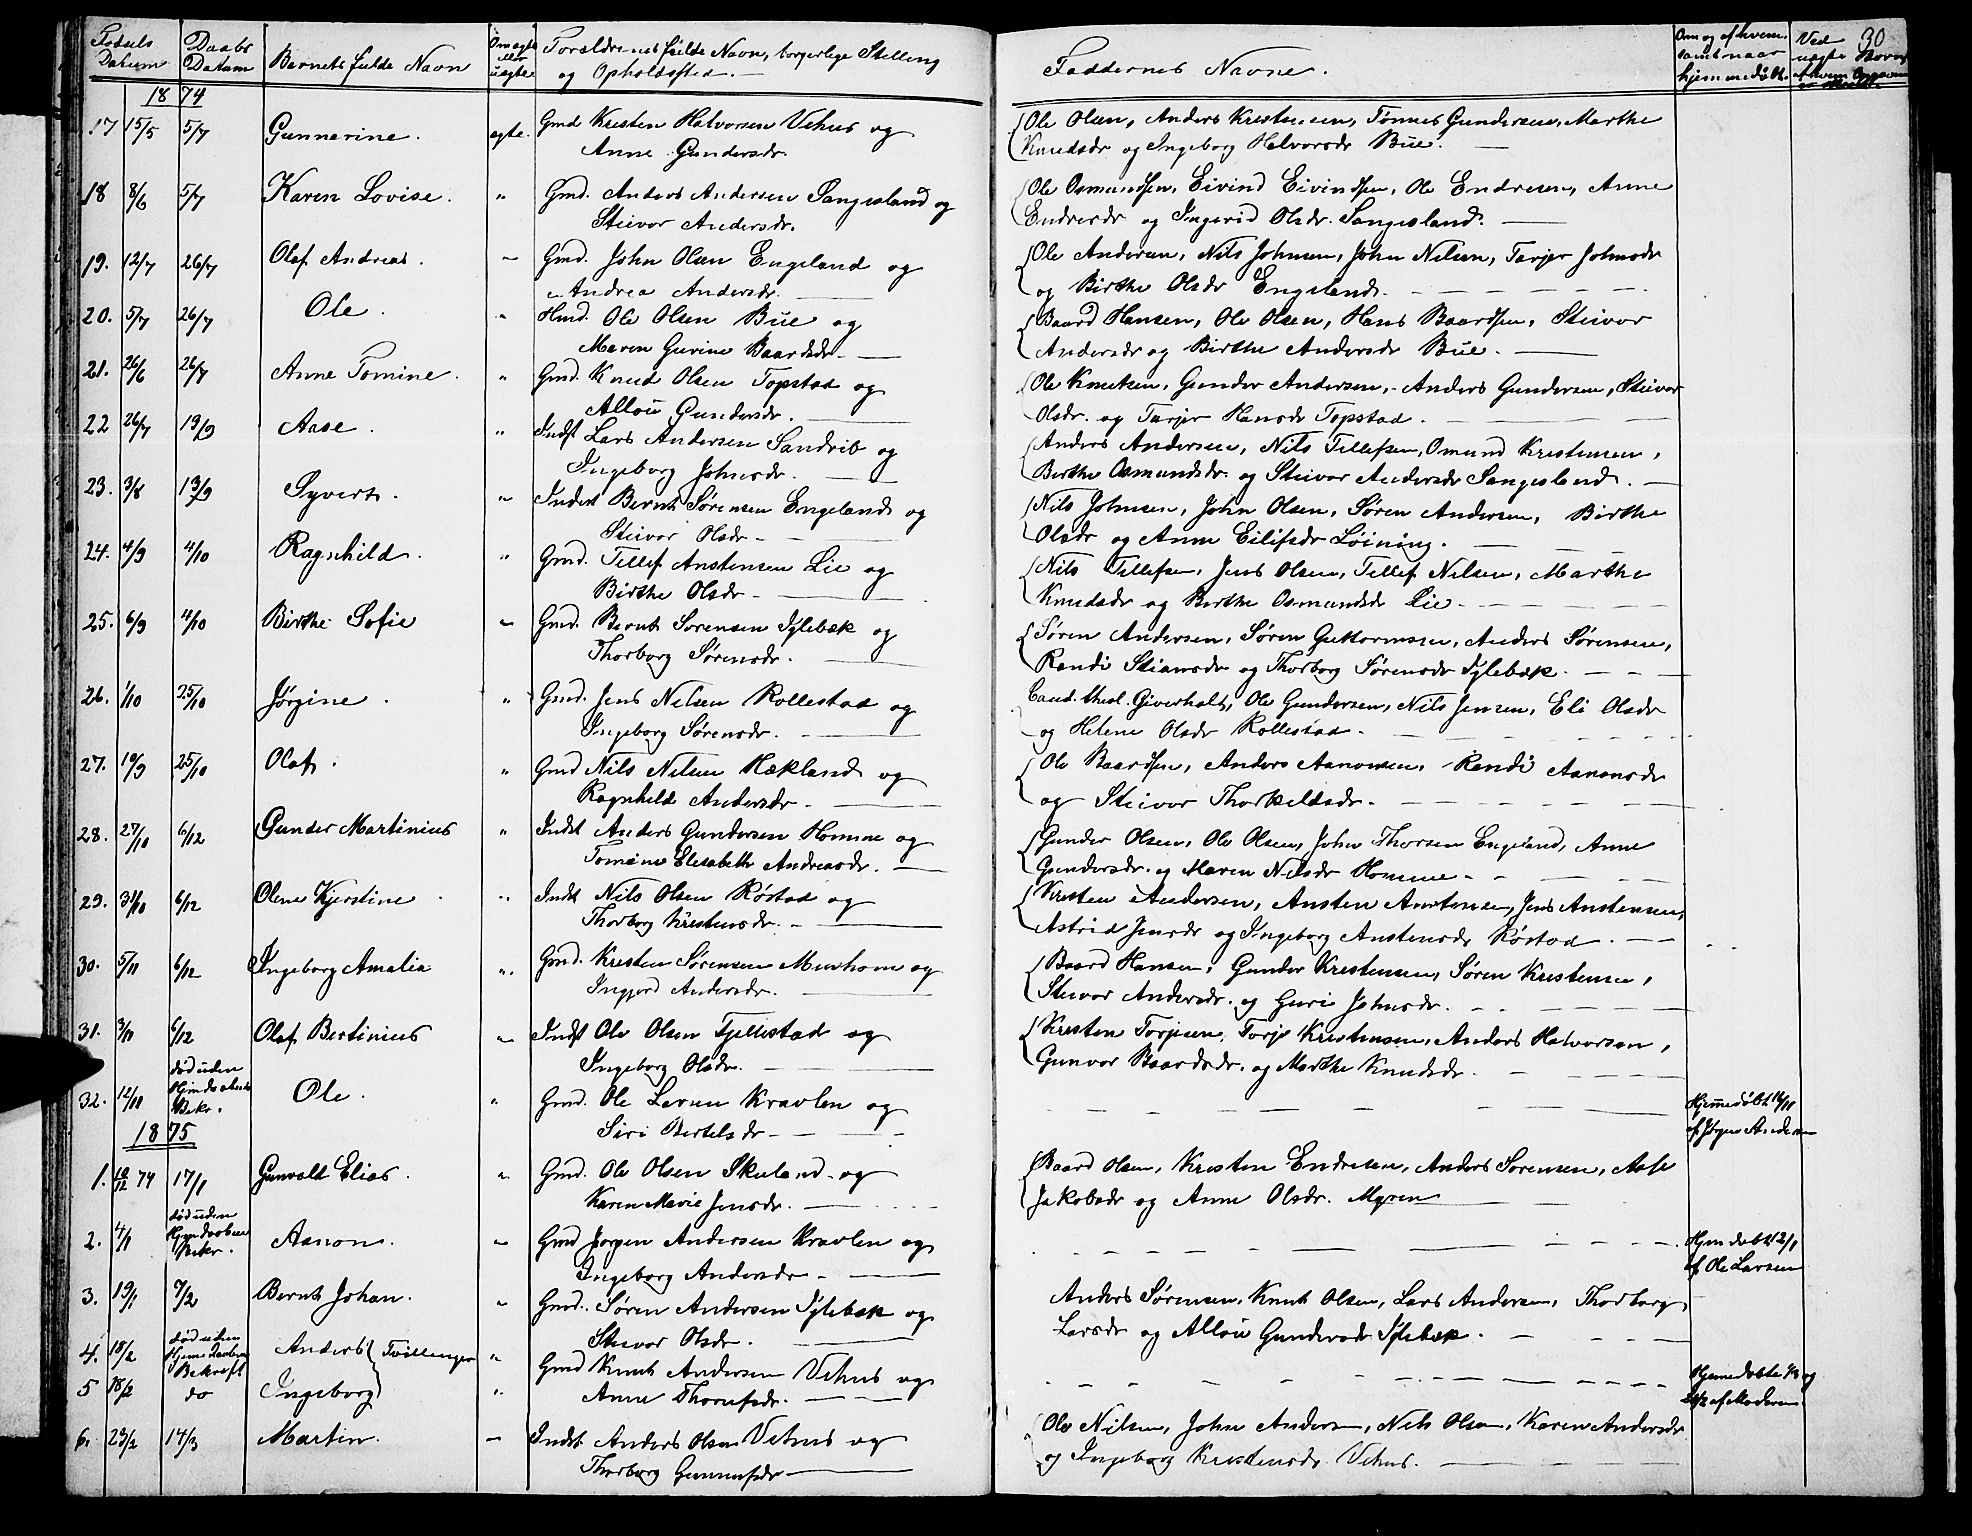 30
Fødsels Datum
Daabs Datum
Barnets fulde Navn
Om ægte eller uægte
Forældrenes fulde Navn, borgerlige Stilling og Opholdssted.
Faddernes Navne.
Om og af hvem samt naar hjemmedøbt.
Ved uægte Børn
1874
17 15/5 5/7 Gunnerine. ægte. Gmd Kresten Halvorsen Vehus og
Anne Gundersdr.
Ole Olsen, Anders Krestensen, Tønnes Gundersen, Marthe
Knudsdr og Ingeborg Halvorsdr Bue.
18 8/6 5/7 Karen Lovise. " Gmd. Anders Andersen Sangesland og
Stiivor Andersdr.
Ole Osmundsen, Eivind Eivindsen, Ole Endresen, Anne
Endresdr og Ingerid Olsdr. Sangesland.
19. 12/7 26/7 Olaf Andreas. " Gmd. John Olsen Engeland og
Andrea Andersdr.
Ole Andersen, Nils Johnsen, John Nilsen, Tarjer Johnsdr
og Birthe Olsdr Engeland.
20. 5/7 26/7 Ole. " Hmd. Ole Olsen Bue og
Maren Gurine Baardsdr.
Baard Hansen, Ole Olsen, Hans Baardsen, Stiivor
Andersdr og Birthe Andersdr Bue.
21. 26/6 26/7 Anne Tomine. " Gmd. Knud Olsen Topstad og
Allou Gundersdr.
Ole Knutsen, Gunder Andersen, Anders Gundersen, Stiivor
Olsdr. og Tarjer Hansdr Topstad.
22 26/7 13/9 Aase. " Indst Lars Andersen Sandvib og
Ingeborg Johnsdr.
Anders Andersen, Nils Tellefsen, Osmund Krestensen,
Birthe Osmundsdr. og Stiivor Andersdr Sangesland.
23. 3/8 13/9 Syvert. " Inderst Bernt Sørensen Engeland og
Stiivor Olsdr.
Nils Johnsen, John Olsen, Søren Andersen, Birthe
Olsdr og Anne Eilifsdr Løining.
24. 4/9 4/10 Ragnhild. " Gmd. Tellef Anstensen Lie og
Birthe Olsdr
Nils Tellefsen, Jens Olsen, Tellef Nilsen, Marthe
Knudsdr og Birthe Osmundsdr Lie.
25. 6/9 4/10 Birthe Sofie " Gmd. Bernt Sørensen Iglebæk og
Thorborg Sørensdr.
Søren Andersen, Søren Guttormsen, Anders Sørensen,
Randi Stiansdr og Thorborg Sørensdr Iglebæk.
26. 1/10 25/10 Jørgine. " Gmd. Jens Nilsen Rollestad og
Ingeborg Sørensdr.
Cand. theol. Giverholt, Ole Gundersen, Nils Jensen, Eli Olsdr
og Helene Olsdr Rollestad.
27. 19/9 25/10 Olaf. " Gmd Nils Nilsen Hækland og
Ragnhild Andersdr.
Ole Baardsen, Anders Aanonsen, Randi Aanonsdr
og Stiivor Thorkildsdr.
28. 27/10 6/12 Gunder Martinius " Indst Anders Gundersen Homme og
Tomine Elisabeth Andreasdr.
Gunder Olsen, Ole Olsen, John Thorsen Engeland, Anne
Gundersdr. og Maren Nilsdr Homme
29. 31/10 6/12 Olene Kjerstine. " Indst Nils Olsen Røstad og
Thorborg Krestensdr.
Kresten Andersen, Ansten Anstensen, Jens Anstensen,
Astrid Jensdr og Ingeborg Anstensdr Røstad.
30. 5/11 6/12 Ingeborg Amalia " Gmd. Kresten Sørensen Murhom og
Ingjerd Andersdr.
Baard Hansen, Gunder Krestensen, Søren Krestensen,
Stiivor Andersdr. og Guri Johnsdr.
31. 3/11 6/12 Olaf Bertinius " Indst Ole Olsen Fjellestad og
Ingeborg Olsdr.
Kresten Torjusen, Torje Krestensen, Anders Halvorsen,
Gunvor Baardsdr. og Marthe Knudsdr.
32. 12/11 død uden Hjmdaabens Bekr. Ole. " Gmd. Ole Larsen Kravlen og
Siri Bertelsdr
Hjemmedøbt 14/11
af Jørgen Andersen
1875
1. 10/12 74 17/1 Gunvald Elias. " Gmd. Ole Olsen Skuland og
Karen Marie Jensdr.
Baard Olsen, Kresten Endresen, Anders Sørensen, Aase
Jakobsdr og Anne Olsdr. Myren
2. 4/1 død uden Hjmdaabens Bekr. Aanon. " Gmd Jørgen Andersen Kravlen og
Ingeborg Andersdr
Hjemdøbt 12/1
af Ole Larsen
3. 13/1 7/2 Bernt Johan. " Gmd. Søren Andersen Iglebæk og
Stiivor Olsdr.
Anders Sørensen, Knut Olsen, Lars Andersen, Thorborg
Larsdr og Allou Gundersdr Iglebæk.
4. 18/2 død uden Hjemmedaabens Bekræft Anders } Tvillinger " Gmd Knut Andersen Vehus og
5 18/2 do Ingeborg } " Anne Thorufsdr.
af Moderen
6. 23/2 14/3 Martin. " Indst. Anders Olsen Vehus og
Thorborg Gunnufsdr
Ole Nilsen, John Andersen, Nils Olsen, Karen Andersdr
og Ingeborg Krestensdr Vehus.